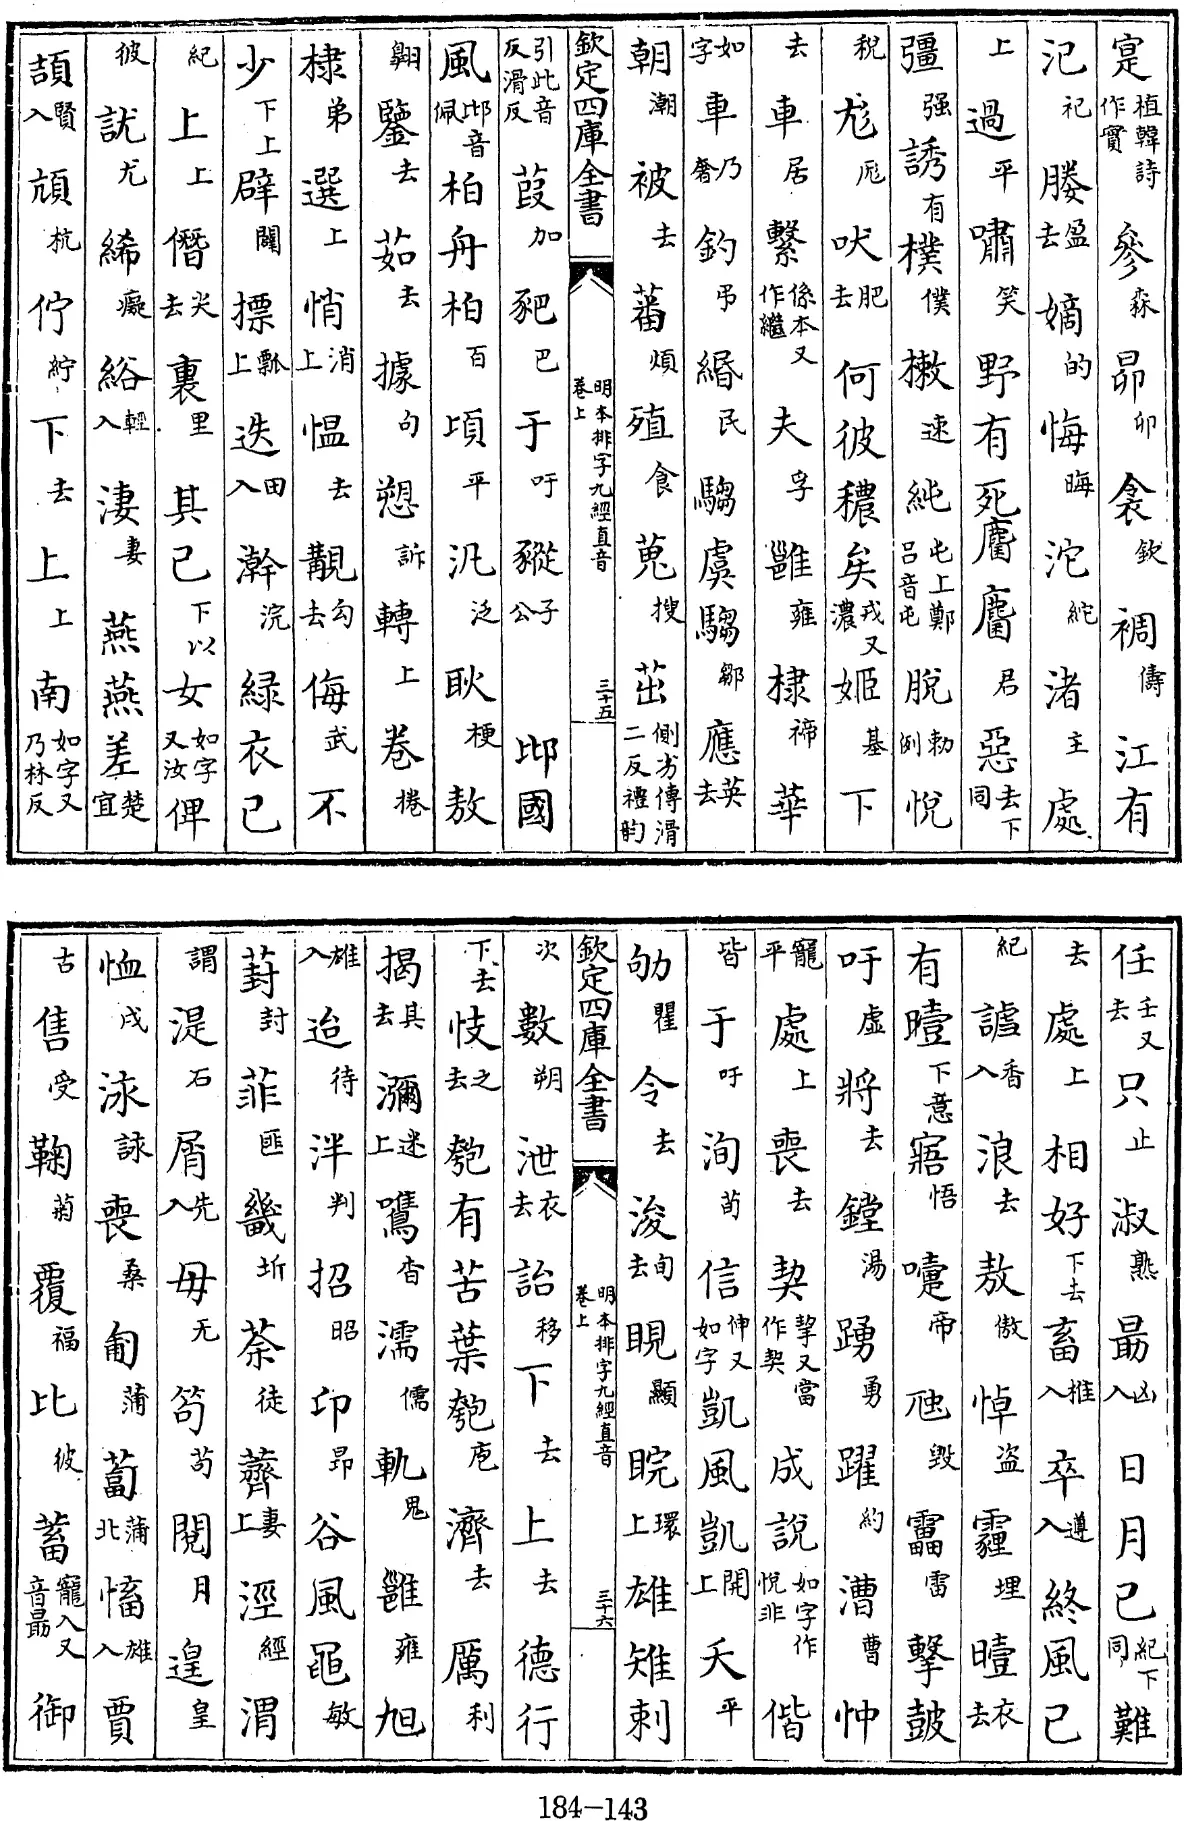 寔植韓詩作實參森昴卯衾欽裯儔江有
汜祀媵盈去嫡的悔晦沱紽渚主處
上過平嘯笑野有死麕麕君惡去下同
彊强誘有樸僕樕速純屯上鄭吕音屯脫勅例悅
稅尨厖吠肥去何彼穠矣戎又濃姬基下
去車居繫係本又作繼夫孚雝雍棣禘華
如字車乃奢釣弔緡民騶虞騶鄒應英去
朝潮被去蕃煩殖食蒐搜茁側劣傳滑二反禮韵
欽定四庫全書 明本排字九經直音卷上 三十五
引此音反滑反葭加豝巴于吁豵子公邶國
風邶音佩柏舟柏百頃平汎泛耿梗敖
翺鑒去茹去據句愬訴轉上卷捲
棣弟選上悄消上慍去覯勾去侮武不
少下上辟闢摽瓢上迭田入澣浣緑衣已
紀上上僭尖去裏里其已下以女如字又汝俾
彼訧尤絺癡綌輕入淒妻燕燕差楚宜
頡賢入頏杭佇紵下去上上南如字又乃林反
任壬又去只止淑熟勗凶入日月已紀下同難
去處上相好下去畜推入卒遵入終風已
紀謔香入浪去敖傲悼盗霾埋曀衣去
有曀下意寤悟嚏帝虺毀靁雷擊鼓
吁虚將去鏜湯踴勇躍約漕曹忡
寵平處上喪去契挈又當作契成說如字作悅非偕
皆于吁洵荀信伸又如字凱風凱開上夭平
劬瞿令去浚旬去睍顯睆環上雄雉刺
欽定四庫全書 明本排字九經直音卷上 三十六
次數朔泄衣去詒移下去上去德行
下去忮之去匏有苦葉匏庖濟去厲利
揭其去瀰迷上鷕杳濡儒軌鬼雝雍旭
雄入迨待泮判招昭卬昻谷風黽敏
葑封菲匪畿圻荼徒薺妻上涇經渭
謂湜石屑先入毋无笱苟閱月遑皇
恤戌泳詠喪桑匍蒲蔔蒲北慉雄入賈
古售受鞠菊覆福比彼蓄寵入又音勗御
184-143